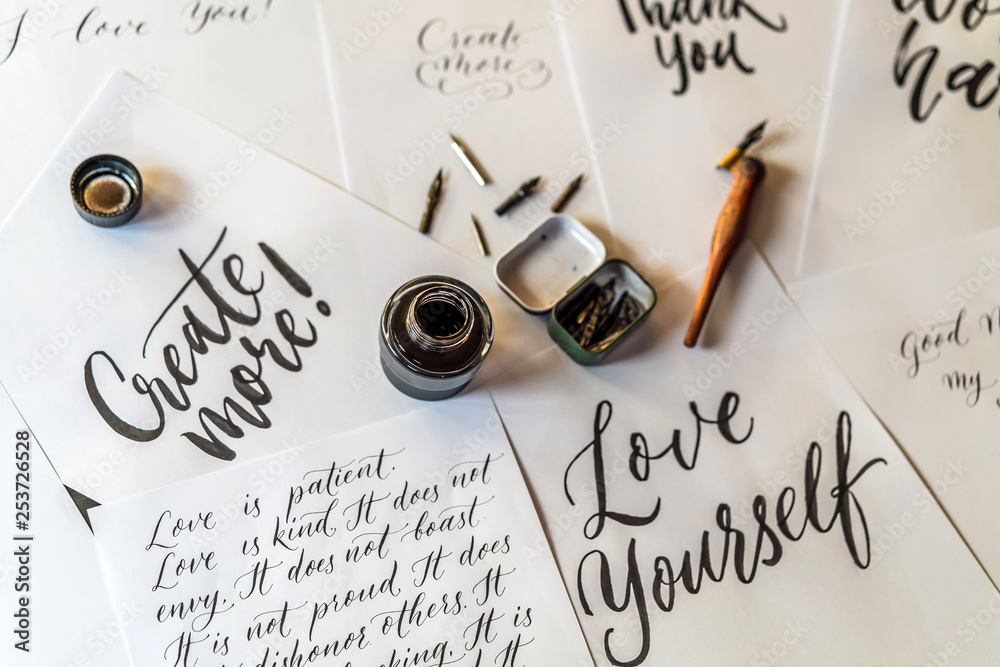 I love you!
Create
more
Thank
you
Create
more!
Good
my
Love is patient.
Love is kind. It does not
envy. It does not boast.
It is not proud. It does
dishonor others. It
It is
Love
Yourself
Adobe Stock | #253726528